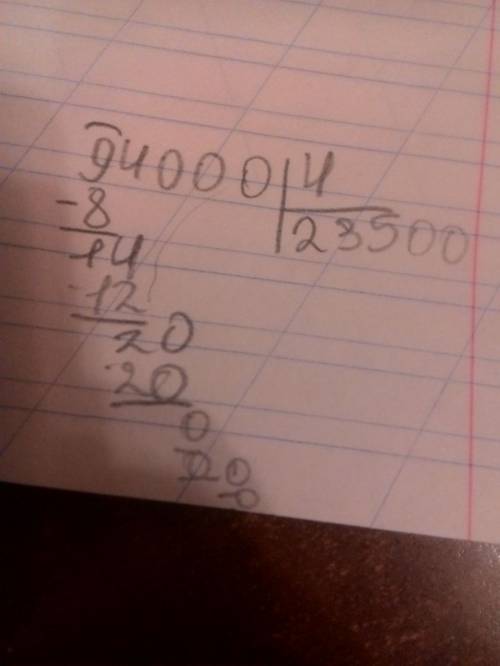 94000 4
-8 23500
14
-12
20
-20
0
-0 0
-0